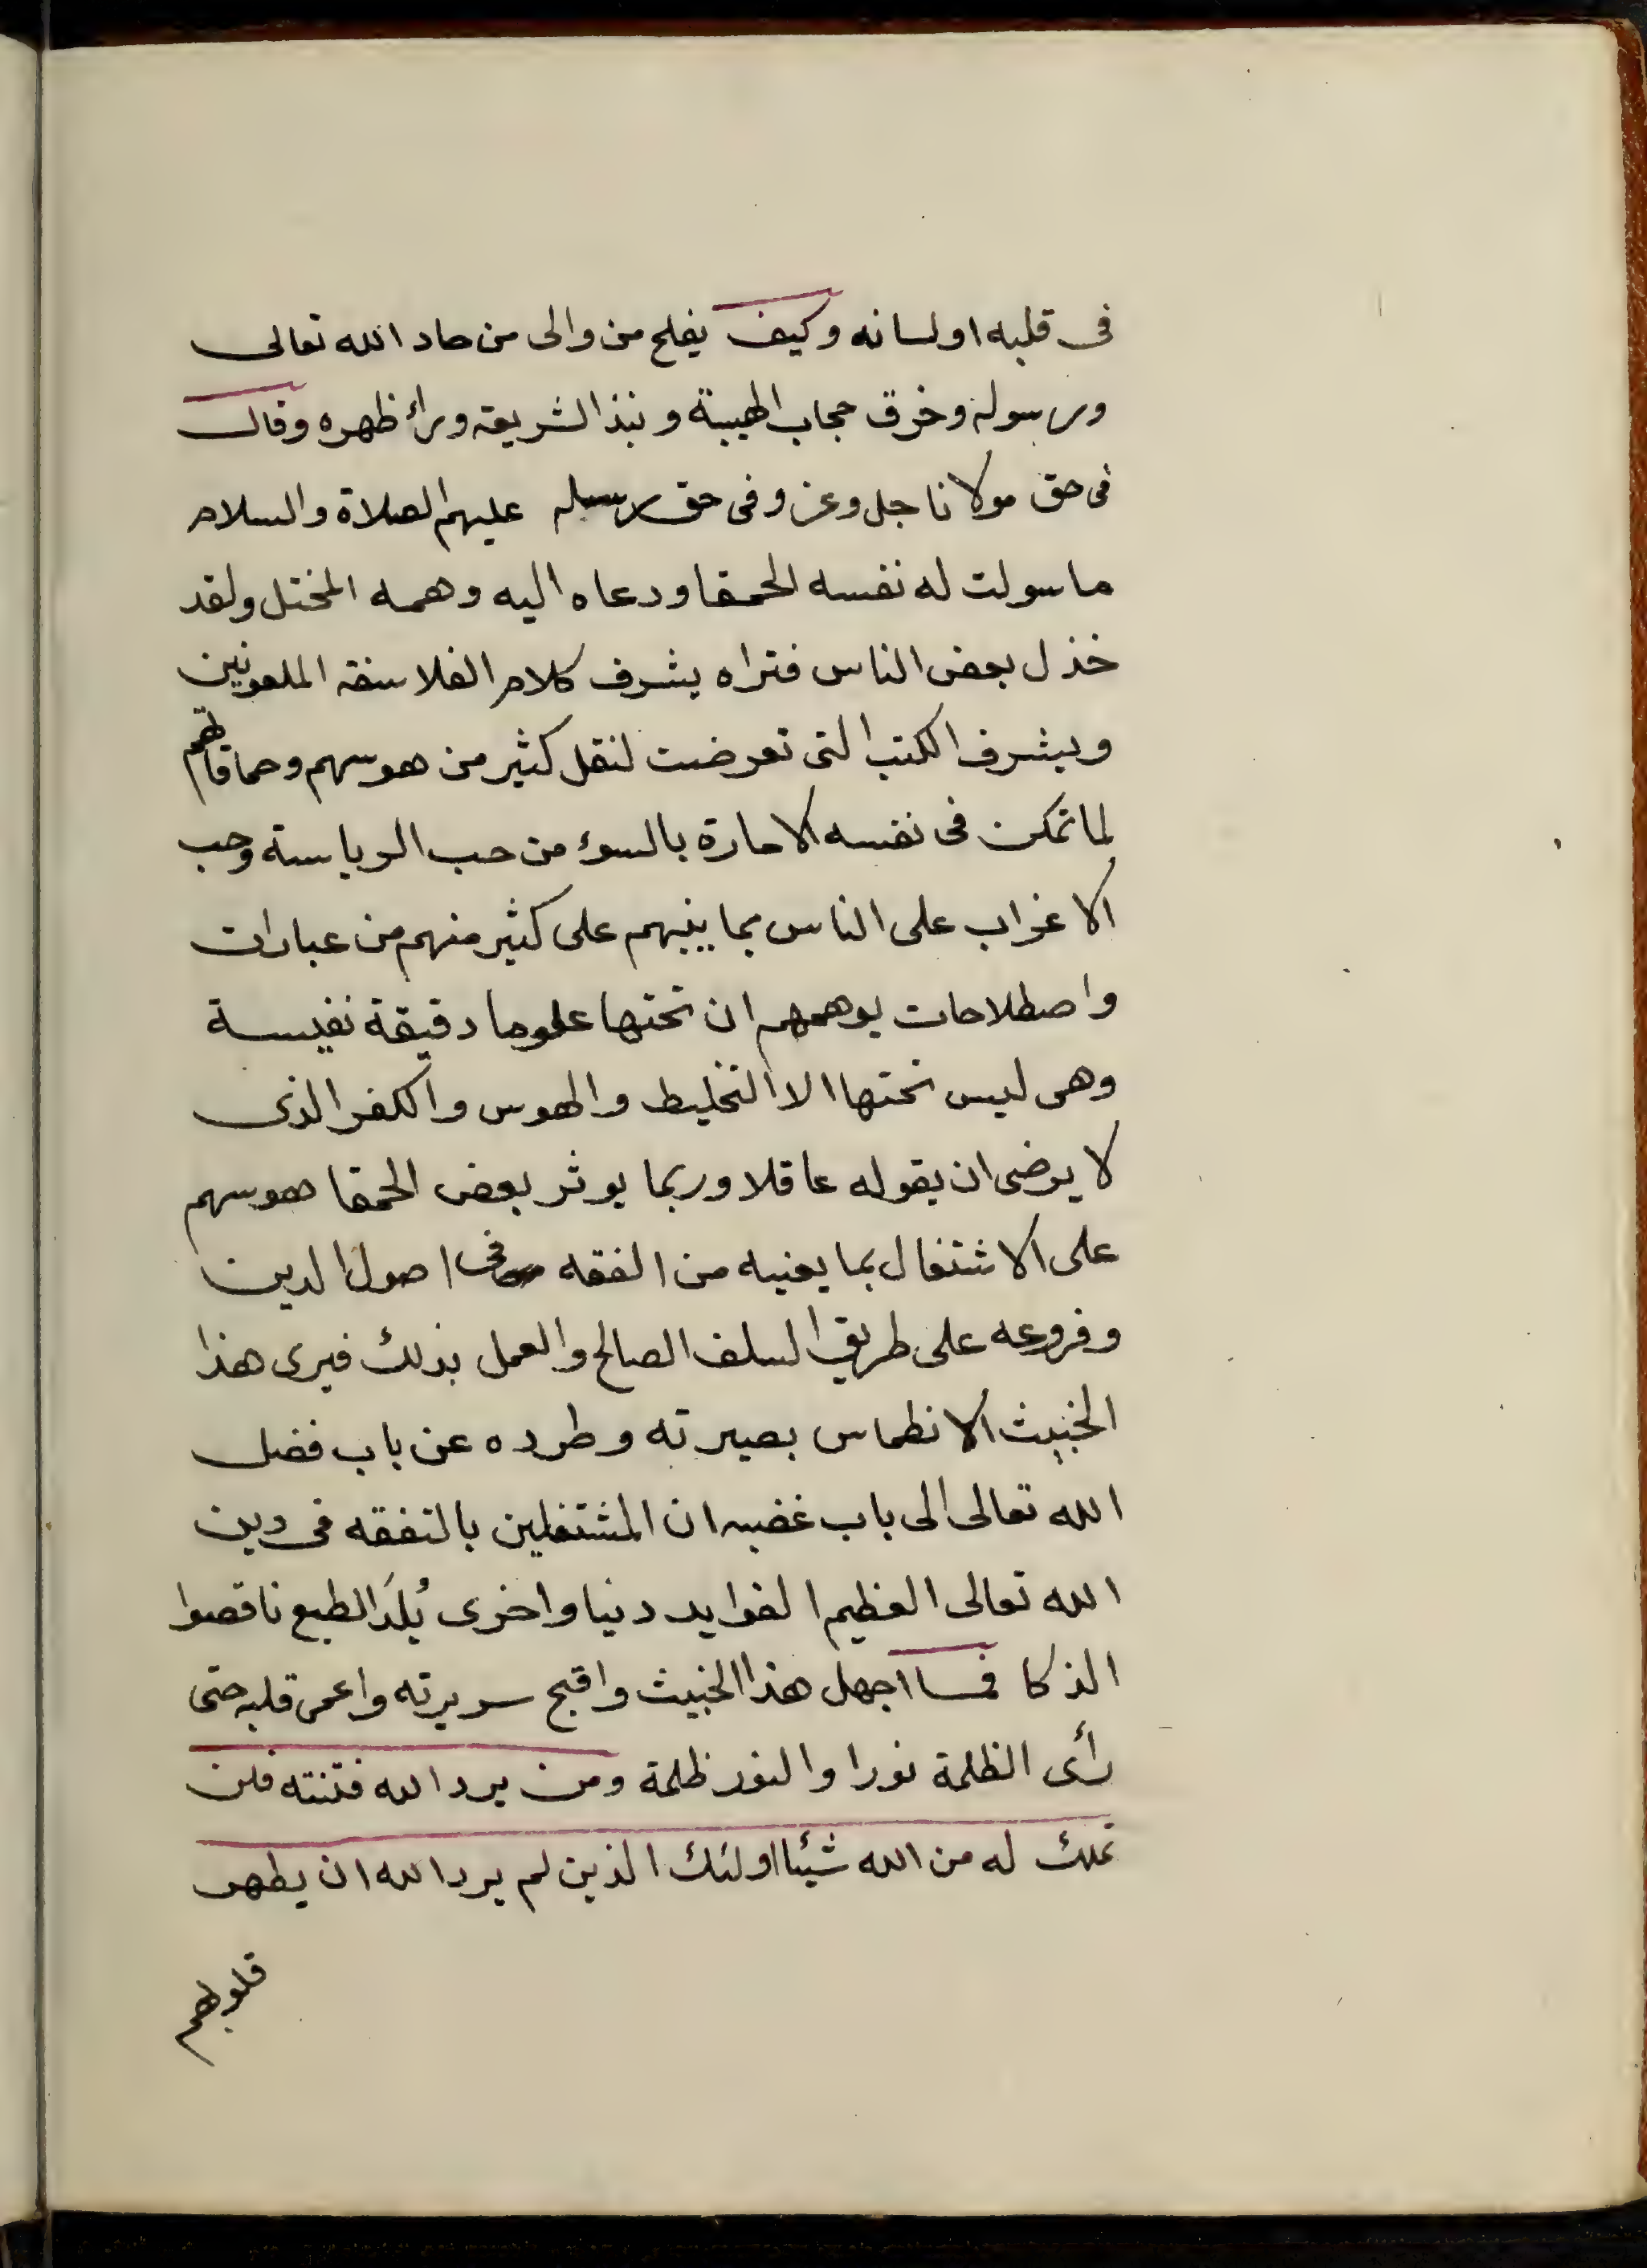 فى قلبه او لسانه وكيف يفلح من والى من حاد الله تعالى
ورسوله وخرق حجاب الهيبة ونبذ الشريعة ورأ ظهره وقال
فى حق مولانا جل وعز وفى حق رسله عليهم الصلاة والسلام
ما سولت له نفسه الحمقا ودعاه اليه وهمه المختل ولقد
خذل بعض الناس فتراه يشرف كلام الفلاسفة الملعونين
ويشرف الكتب التى تعرضت لنقل كثير من هوسهم وحماقاتهم
لما تمكن فى نفسه الامارة بالسوء من حب الرياسة وحب
الاغراب على الناس بما ينبهم على كثير منهم من عبارات
واصطلاحات يوهمهم ان تحتها علوما دقيقة نفيسة
وهى ليس تحتها الا التخليط والهوس والكفر الذى
لا يرضى ان يقوله عاقلا وربما يوثر بعض الحمقا هوسهم
على الاشتغال بما يعنيه من الفقه فى اصول الدين
وفروعه على طريق السلف الصالح والعمل بذلك فيرى هذا
الخبيث الانطماس بصيرته وطرده عن باب فضل
الله تعالى الى باب غضبه ان المشتغلين بالتفقه فى دين
الله تعالى العظيم الفوايد دنيا واخرى بُلَدَ الطبع ناقصوا
الذكا فما اجهل هذا الخبيث واقبح سريرته واعمى قلبه حتى
رأى الظلمة نورا والنور ظلمة ومن يرد الله فتنته فلن
تملك له من الله شيئا اولئك الذين لم يرد الله ان يطهر
قلوبهم